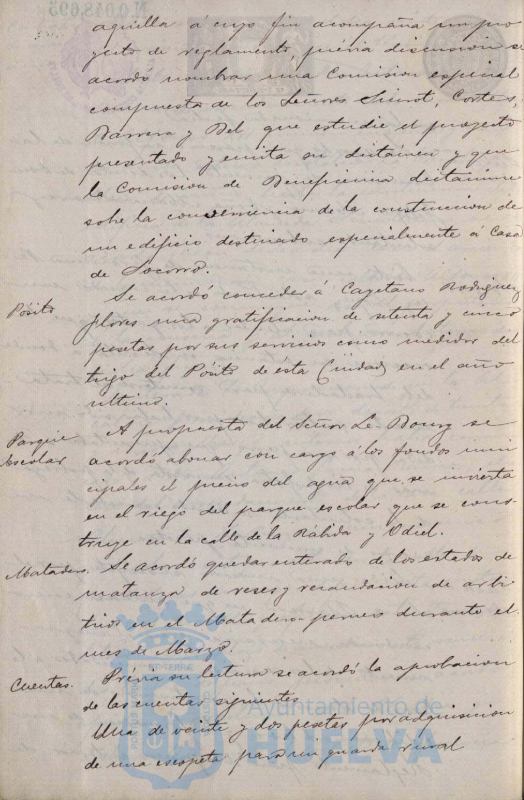 N.0.048,695
aquella á cuyo fin acompaña un pro-
yecto de reglamento, prévia discusion se
acordó nombrar una Comision especial
compuesta de los Señores Cortes,
Barrera y Bel que estudie el proyecto
presentado y emita su dictámen y que
la Comision de Beneficencia dictamine
sobre la conveniencia de la construccion de
un edificio destinado especialmente á Casa
de Socorro.
Pósito
Se acordó conceder á Cayetano Rodriguez
Flores una gratificacion de setenta y cinco
pesetas por sus servicios como medidor del
trigo del Pósito de ésta Ciudad en el año
ultimo.
Parque
escolar
A propuesta del Señor Le Bourg se
acordó abonar con cargo á los fondos muni
cipales el precio del agua que se invierta
en el riego del parque escolar que se cons-
truye en la calle de la Rábida y Odiel.
Matadero.
Se acordó quedar enterado de los estados de
matanza de reses y recaudacion de arbi-
trios en el Matadero durante el
mes de Marzo.
Cuentas.
Prévia su lectura se acordó la aprobacion
de las cuentas siguientes
Una de veinte y dos pesetas por adquisicion
de una escopeta para un guarda rural
Ayuntamiento de
HUELVA